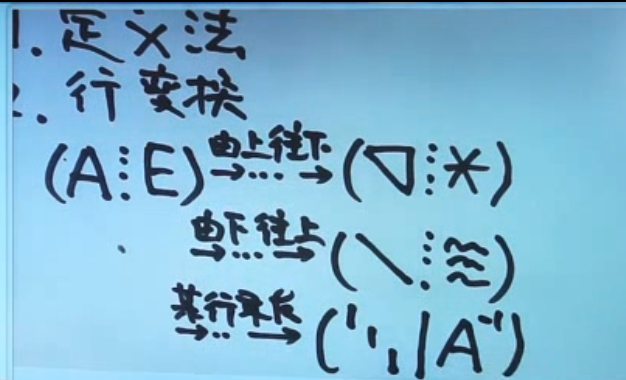 1. 定义法
2. 行变换
(A⋮E) 由上往下 →…→ (▽⋮*)
由下往上 →…→ (\⋮≋)
某行乘长 →…→ (¹1₁|A⁻¹)